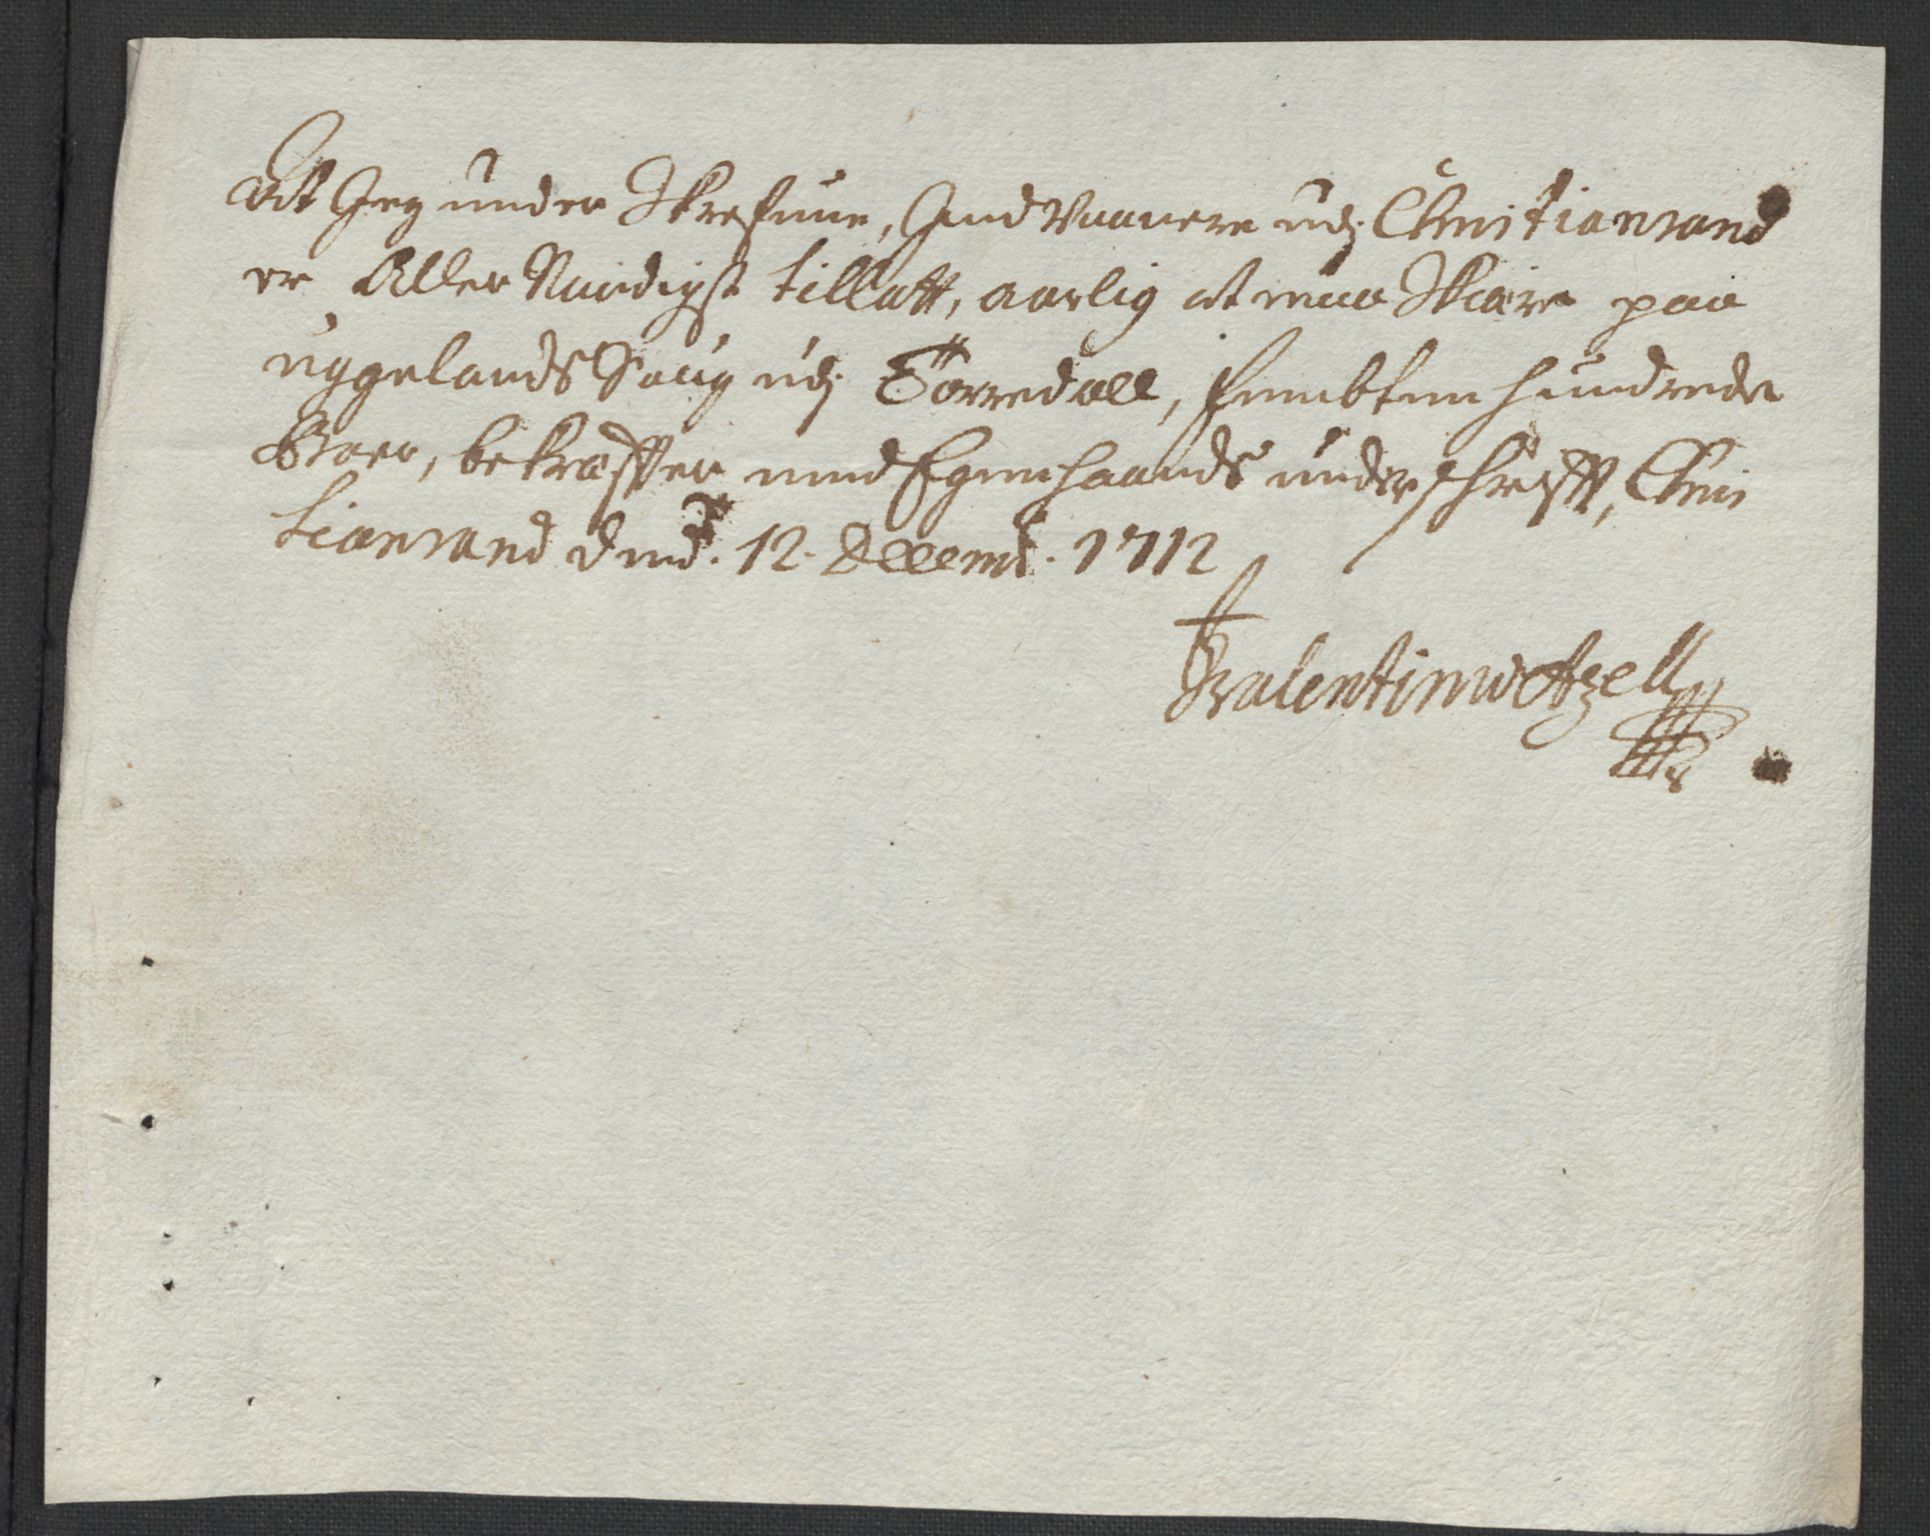 At Jeg under Skrefune, Indvaanere udj Christiansand
er Aller Naadigst tillatt, aarlig at maa Skiære paa
uggelands Saug udj Torredall, fembten hundrede
Boer, bekræffter med Egen haands under schrifft, Chris
tiansand dend. 12. Decemb. 1712
Valentin wetzell